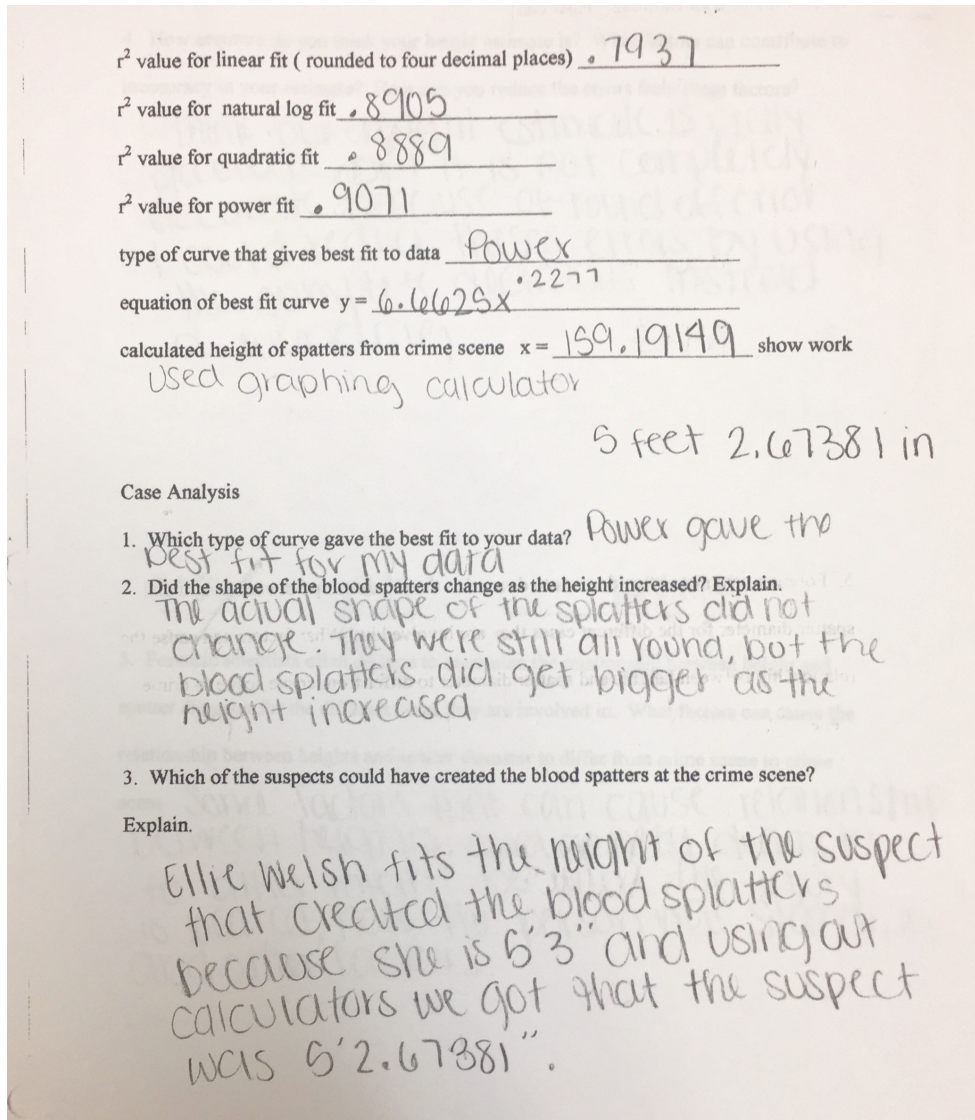 r² value for linear fit ( rounded to four decimal places) .7937
r² value for natural log fit .8905
r² value for quadratic fit .8889
r² value for power fit .9071
type of curve that gives best fit to data Power
equation of best fit curve y = 6.6625x^.2277
calculated height of spatters from crime scene x = 159.19149 show work
Used graphing calculator
5 feet 2.67381 in
Case Analysis
1. Which type of curve gave the best fit to your data? Power gave the
best fit for my data
2. Did the shape of the blood spatters change as the height increased? Explain.
The actual shape of the splatters did not
change. They were still all round, but the
blood splatters did get bigger as the
height increased
3. Which of the suspects could have created the blood spatters at the crime scene?
Explain.
Ellie Welsh fits the height of the suspect
that created the blood splatters
because she is 5'3" and using out
calculators we got that the suspect
was 5'2.67381".